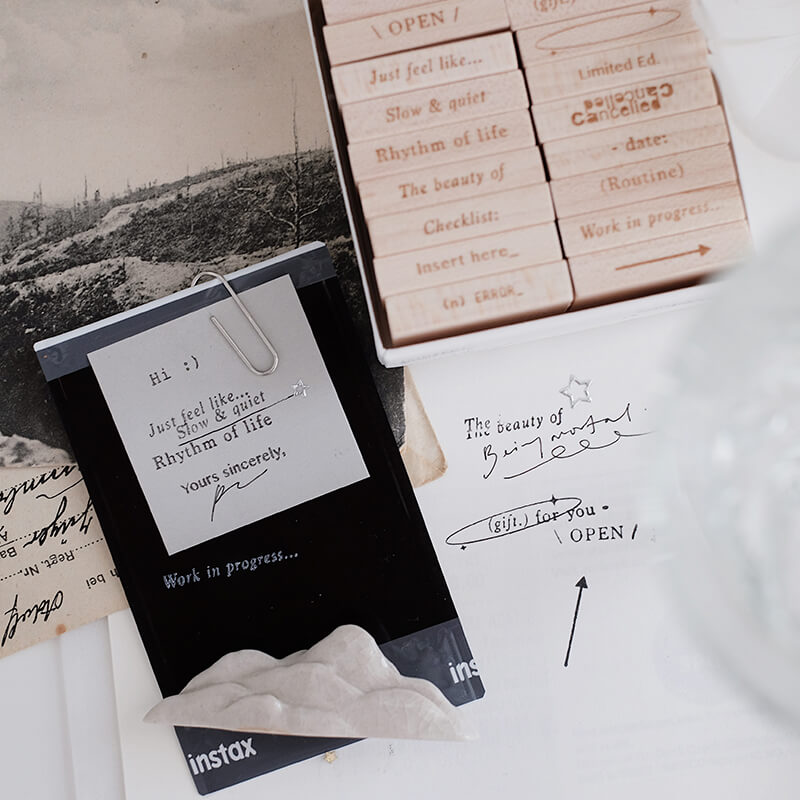 \ OPEN /
Just feel like...
Slow & quiet
Rhythm of life
The beauty of
Checklist:
Insert here_
(n) ERROR_
(gift.)
Limited Ed.
Cancelled
Cancelled
- date:
(Routine)
Work in progress...
Hi :)
Just feel like...
Slow & quiet
Rhythm of life
Yours sincerely,
Work in progress...
instax
ins
The beauty of
Being mortal.
(gift.) for you -
\ OPEN /
Regt. Nr.
h bei